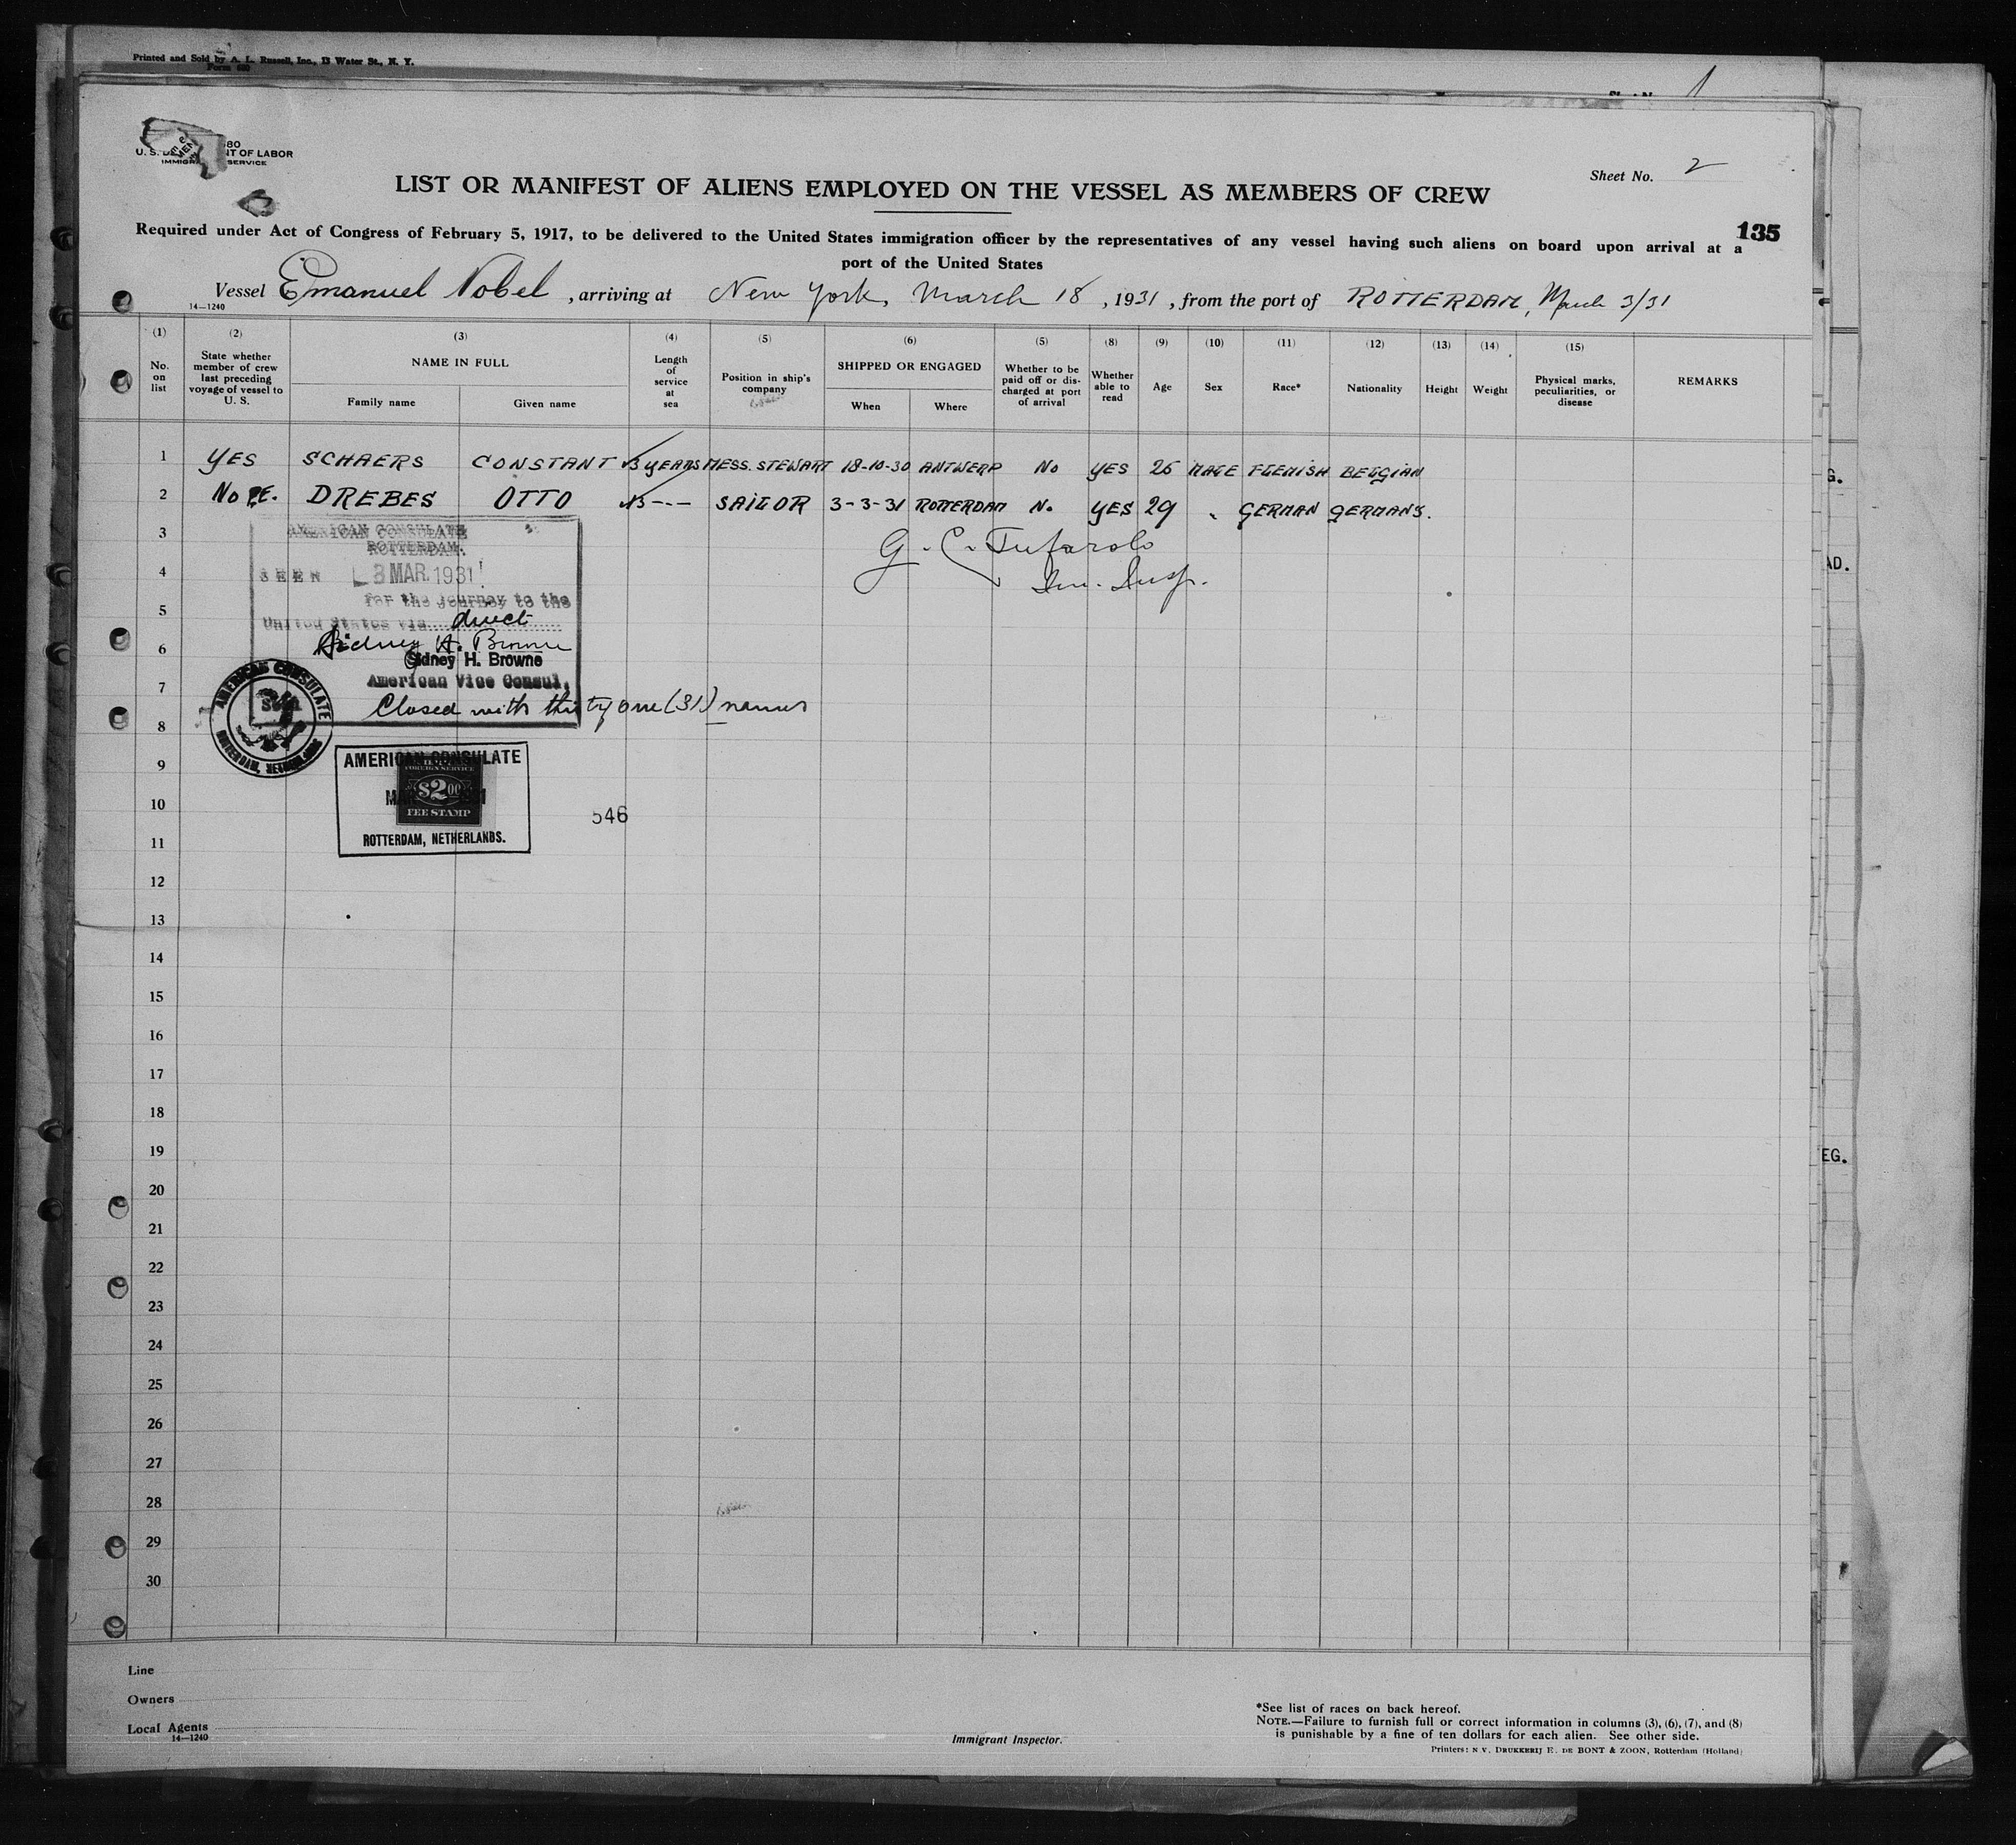 Printed and Sold by A. L. Russell, Inc., 13 Water St., N. Y.
Form 680
1
U. S. NT OF LABOR
IMMIGR SERVICE
Sheet No. 2
LIST OR MANIFEST OF ALIENS EMPLOYED ON THE VESSEL AS MEMBERS OF CREW
135
Required under Act of Congress of February 5, 1917, to be delivered to the United States immigration officer by the representatives of any vessel having such aliens on board upon arrival at a
port of the United States
Vessel Emanuel Nobel, arriving at New York, March 18, 1931, from the port of ROTTERDAM, March 3/31
14—1240
(1) (2) (3) (4) (5) (6) (5) (8) (9) (10) (11) (12) (13) (14) (15)
No. on list
State whether member of crew last preceding voyage of vessel to U. S.
NAME IN FULL
Family name
Given name
Length of service at sea
Position in ship's company
SHIPPED OR ENGAGED
When
Where
Whether to be paid off or discharged at port of arrival
Whether able to read
Age
Sex
Race*
Nationality
Height
Weight
Physical marks, peculiarities, or disease
REMARKS
1 YES SCHAERS CONSTANT 3 YEARS MESS. STEWART 18-10-30 ANTWERP No YES 26 MALE FLEMISH BELGIAN
2 No P.E. DREBES OTTO 13 --- SAILOR 3-3-31 ROTTERDAM No YES 29 GERMAN GERMANY.
3
4
5
6
7
8
9
10
11
12
13
14
15
16
17
18
19
20
21
22
23
24
25
26
27
28
29
30
AMERICAN CONSULATE
ROTTERDAM.
SEEN 3 MAR. 1931
for the journey to the
United States via direct
Sidney H. Browne
Sidney H. Browne
American Vice Consul.
Closed with thirty one (31) names
G. C. Tufarolo
Im. Insp.
AMERICAN CONSULATE
ROTTERDAM, NETHERLANDS
AMERICAN CONSULATE
FOREIGN SERVICE
$2.00
FEE STAMP
ROTTERDAM, NETHERLANDS.
546
G.
AD.
EG.
Line
Owners
Local Agents
14—1240
Immigrant Inspector.
*See list of races on back hereof.
NOTE.—Failure to furnish full or correct information in columns (3), (6), (7), and (8)
is punishable by a fine of ten dollars for each alien. See other side.
Printers: N V. DRUKKERIJ E. DE BONT & ZOON, Rotterdam (Holland)